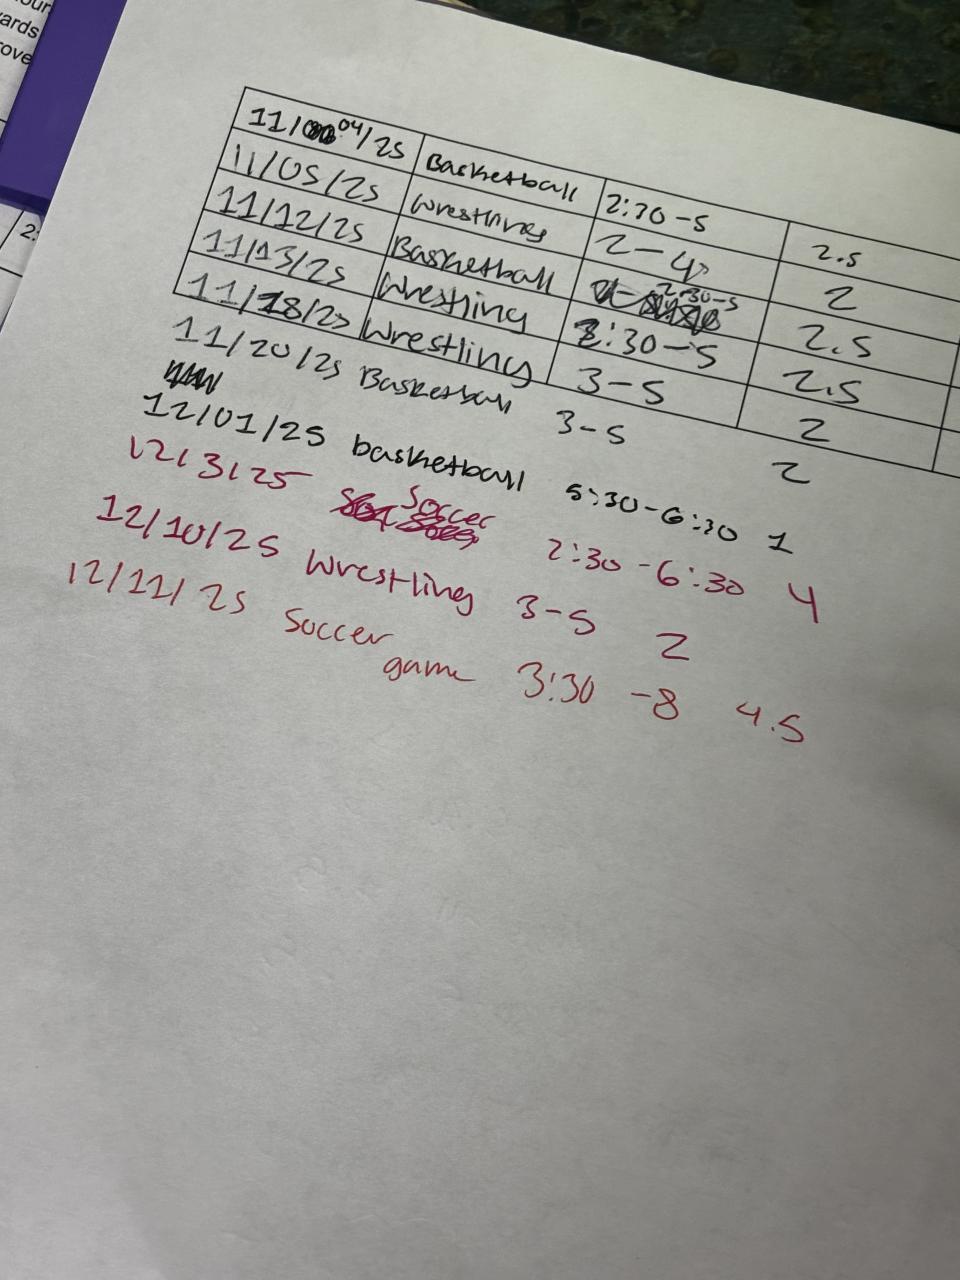 our
ards
rove
2:
11/04/25 Basketball 2:30-5 2.5
11/05/25 Wrestling 2-4 2
11/12/25 Basketball 2:30-5 2.5
11/13/25 Wrestling 2:30-5 2.5
11/18/25 Wrestling 3-5 2
11/20/25 Basketball 3-5 2
12/01/25 basketball 5:30-6:30 1
12/3/25 Soccer 2:30-6:30 4
12/10/25 Wrestling 3-5 2
12/11/25 Soccer game 3:30-8 4.5